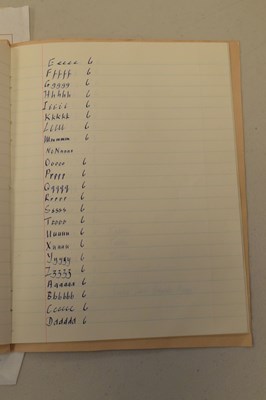 Eeeee 6
Fffff 6
Ggggg 6
Hhhhh 6
Iiiii 6
Kkkkk 6
Lllll 6
Mmmmm 6
NoNnnnn
Ooooo 6
Ppppp 6
Qqqqq 6
Rrrrr 6
Sssss 6
Ttttt 6
Uuuuu 6
Xxxxx 6
Yyyyy 6
Zzzzz 6
Aaaaaa 6
Bbbbbb 6
Cccccc 6
Dddddd 6